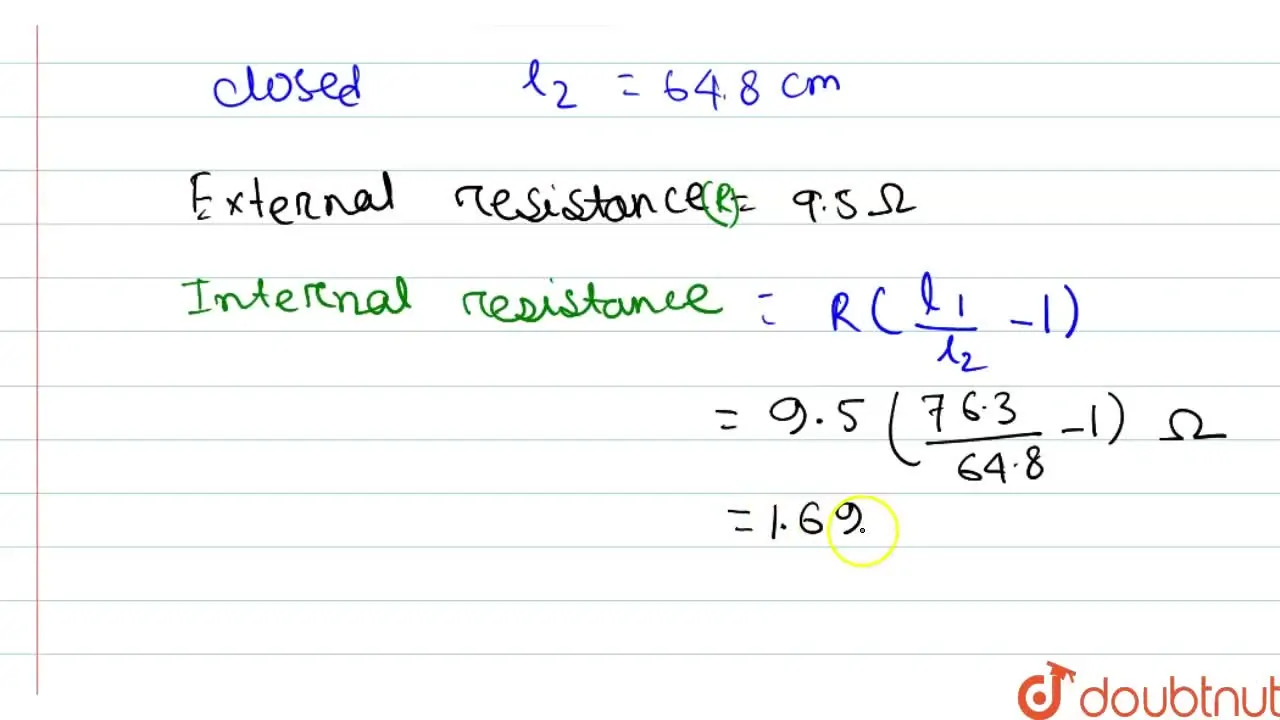 closed l₂ = 64.8 cm
External resistance (R) = 9.5 Ω
Internal resistance = R ( l₁/l₂ - 1 )
= 9.5 ( 76.3/64.8 - 1 ) Ω
= 1.69
doubtnut